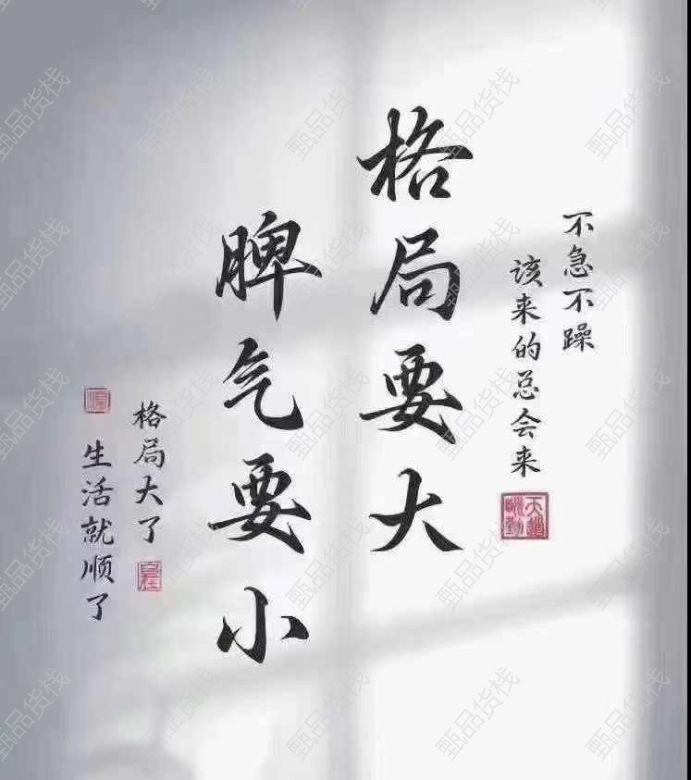 不急不躁
该来的总会来
天道酬勤
格局要大
脾气要小
格局大了
生活就顺了
甄品货栈